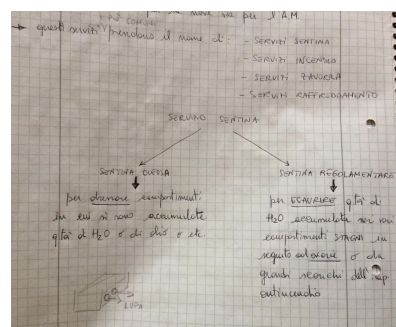 nave sia per l'A.M
più comuni
→ questi servizi prendono il nome di: - SERVIZI SENTINA
- SERVIZI INCENDIO
- SERVIZI ZAVORRA
- SERVIZI RAFFREDDAMENTO
SERVIZIO SENTINA
SENTINA
SENTINA REGOLAMENTARE
per drenare compartimenti
in cui si sono accumulate
q.tà di H2O o di olio o etc
per ESAURIRE q.tà di
H2O accumulata nei vari
compartimenti STAGNI in
seguito ad avarie o da
grandi scarichi dell'imp
antincendio
LUPA